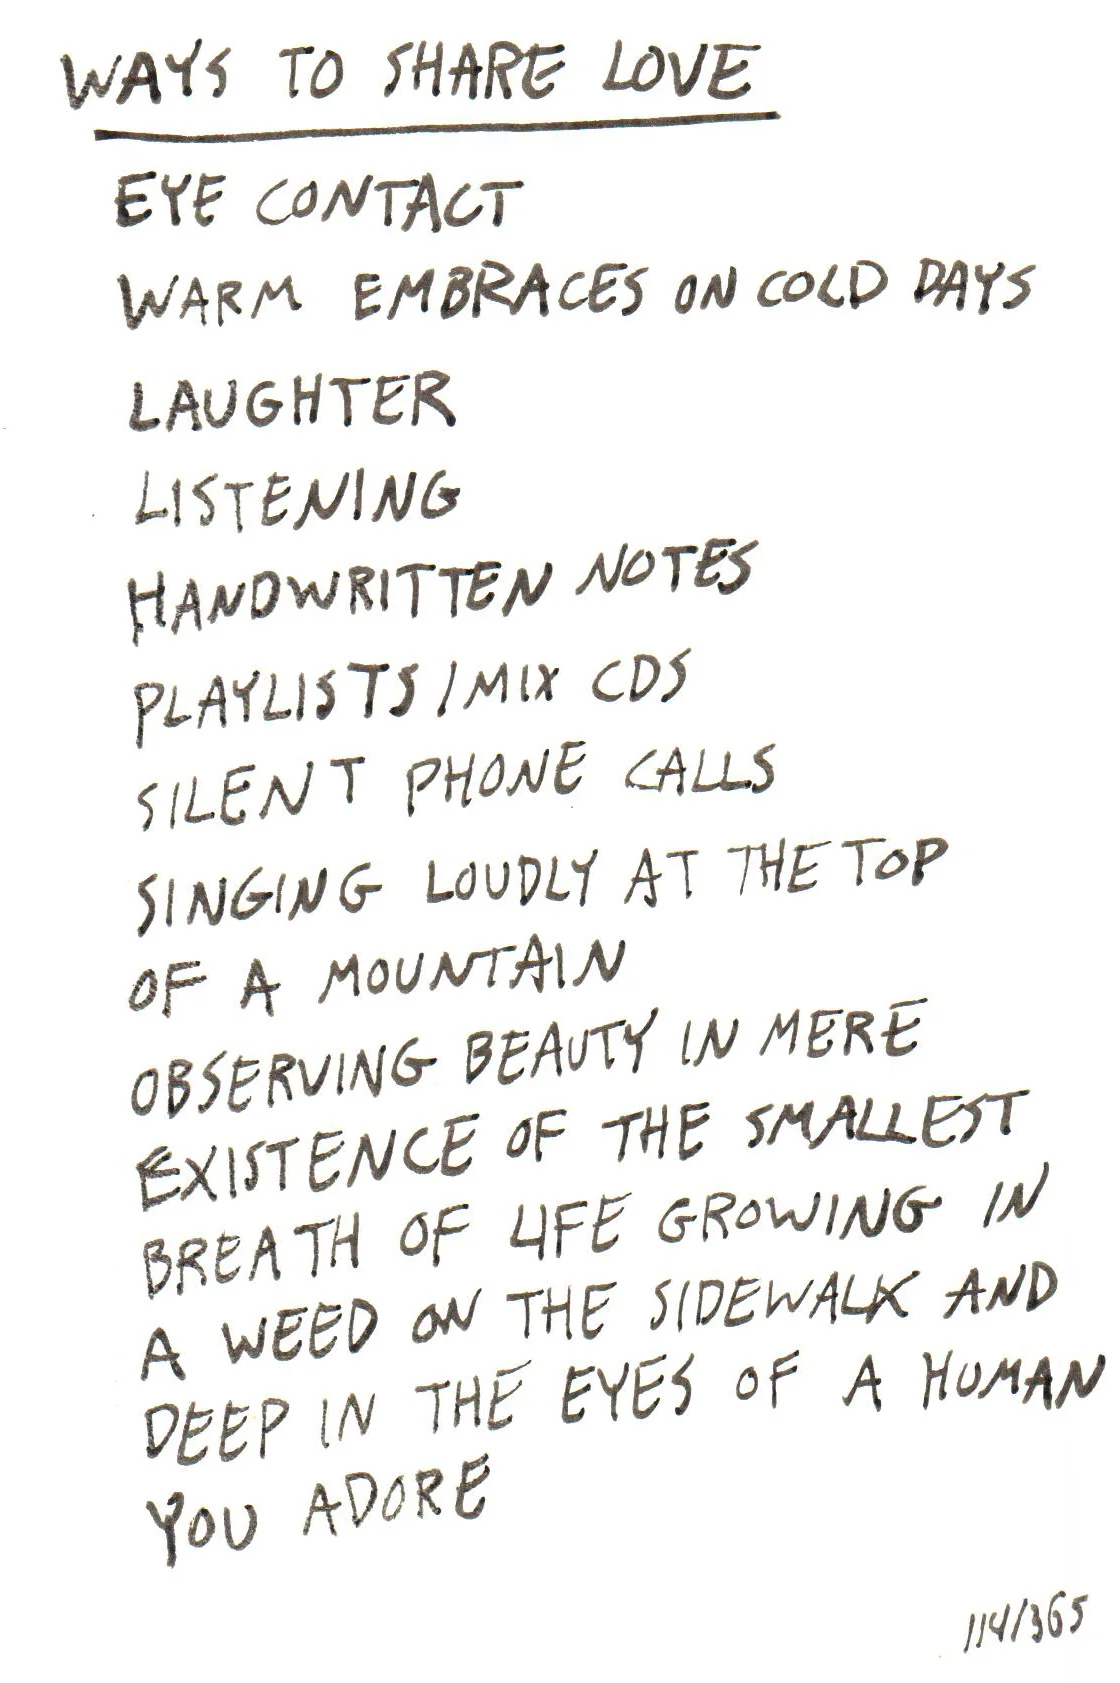 WAYS TO SHARE LOVE
EYE CONTACT
WARM EMBRACES ON COLD DAYS
LAUGHTER
LISTENING
HANDWRITTEN NOTES
PLAYLISTS/MIX CDS
SILENT PHONE CALLS
SINGING LOUDLY AT THE TOP
OF A MOUNTAIN
OBSERVING BEAUTY IN MERE
EXISTENCE OF THE SMALLEST
BREATH OF LIFE GROWING IN
A WEED ON THE SIDEWALK AND
DEEP IN THE EYES OF A HUMAN
YOU ADORE
114/365